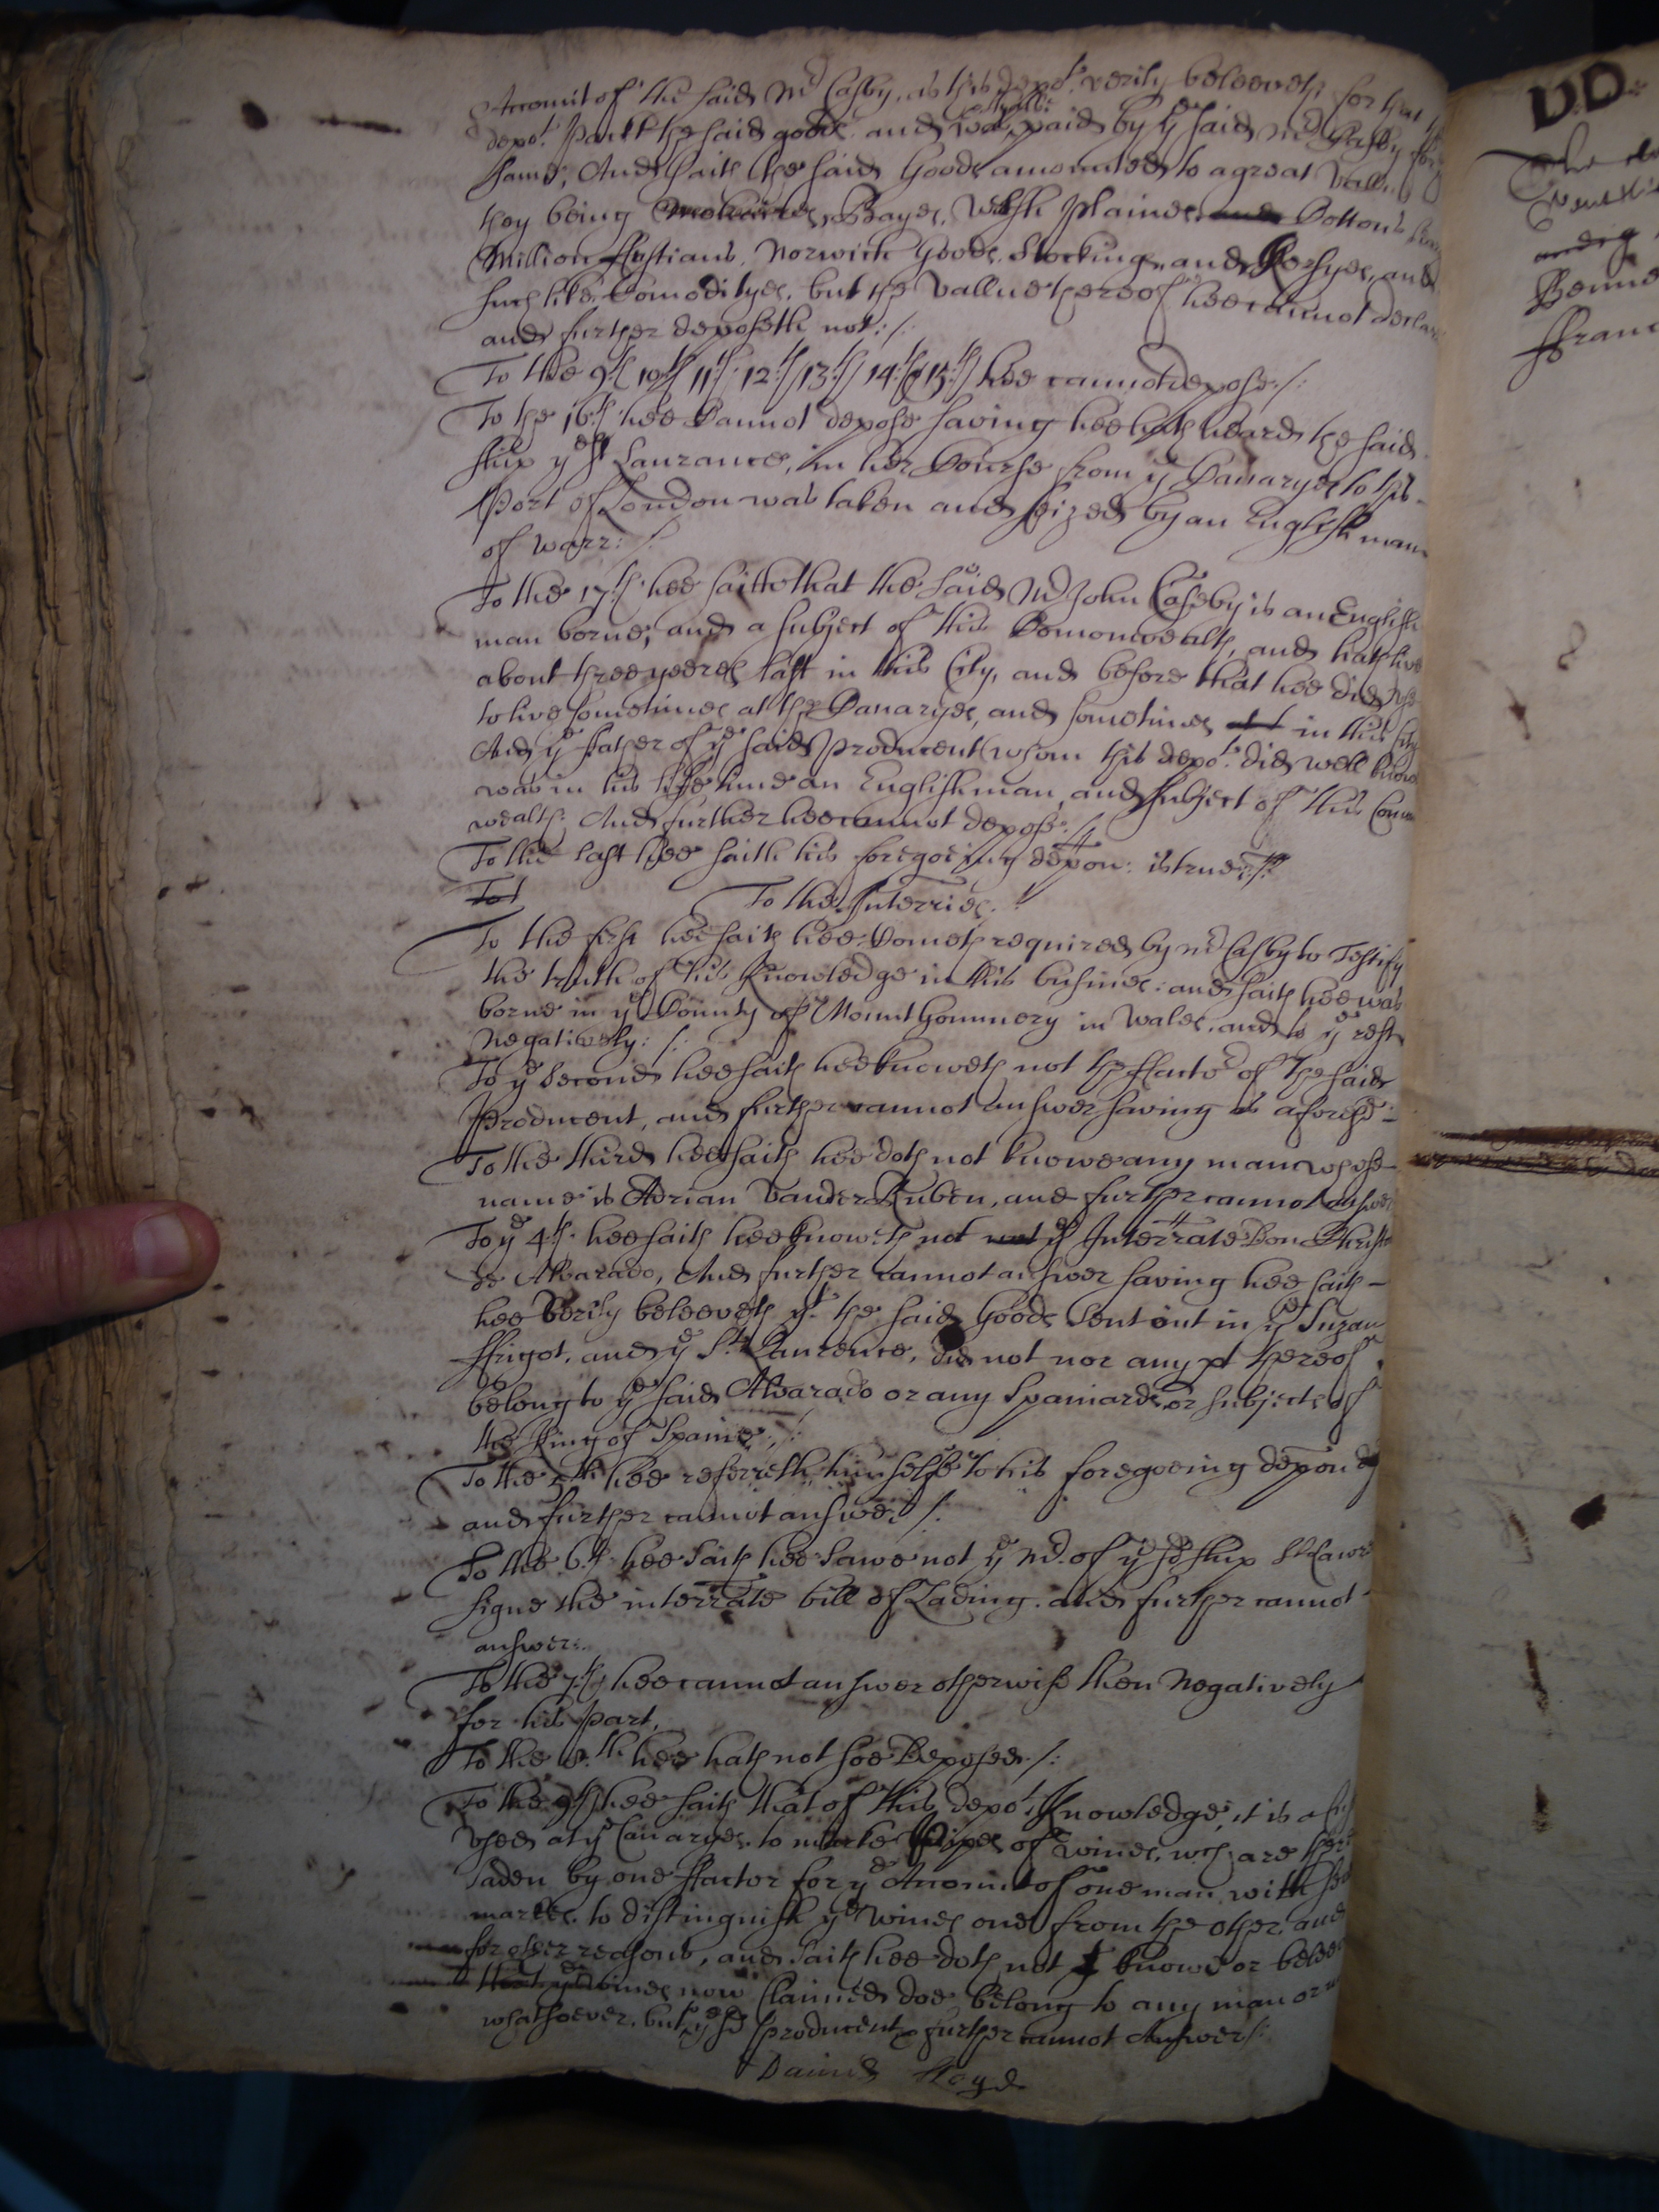 Accomit of the said Mr Casby, as this depot. verily beleeveth for that
depot. Packt the said goods and was paid by ye said Mr Casby for
same, And saith the said Goods amounted to a great vallu
they being Bayes, Welsh Plaines, Cottons
Million ffustians, Norwich Goods, Stockings, and Kersyes, and
such like Comodityes, but the vallue thereof hee cannot declare
and further deposeth not:/:
To the 9th 10th 11th 12th 13th 14th & 15th hee cannot depose:/:
To the 16th hee Cannot depose saving hee hath heard the said
ship ye St Laurance, in her Course from ye Canaryes to this
Port of London was taken and seized by an English man
of Warr:/:
To the 17th hee saith that the said Mr John Casby is an English
man borne, and a subject of this Comonwealth, and hath live
about three yeeres last in this City, and before that hee did use
to live sometimes at the Canaryes, and sometimes at in this City
And ye father of ye said Producent (whom this depot. did well know
was in his life time an Englishman, and subject of this Comon
wealth: And further hee cannot depose:/:
To the last hee saith his foregoeing depon: is true:/:
To t
To the Interries.
To the first hee saith hee Cometh required by Mr Casby to Testify
the truth of his knowledge in this busines: and saith hee was
borne in ye County of Mount Gommery in Wales, and to ye rest
Negatively:/:
To ye Second hee saith hee knoweth not the ffactor of the said
Producent, and further cannot answer saving as aforesd:
To the third hee saith hee doth not knowe any man whose
name is Adrian Vander Ruben, and further cannot answer
To ye 4th hee saith hee knoweth not ye Interrate Don Christo
de Alvarado, And further cannot answer saving hee saith
hee verily beleeveth yt the said Goods Sent out in ye Suzan
ffrigot, and ye St Laurence, did not nor any pt thereof
belong to ye said Alvarado or any Spaniards or subjects of
the King of Spaine:/:
To the 5th hee referreth himselfe to his foregoeing depon
and further cannot answer:/:
To the 6th hee saith hee Sawe not ye Mr. of ye sd ship St Lawr
signe the interrate bill of Lading. and further cannot
answer:
To the 7th hee cannot answer otherwise then Negatively
for his part,
To the 8th hee hath not soe Deposed:/:
To the 9th hee saith that of this depots knowledge, it is
used at ye Canaryes to marke Pipes of wines, wch are there
laden by one ffactor for ye Accomit of one man with
markes to distinguish ye wines one from the other, and
for other reasons, and saith hee doth not knowe or beleeve
that ye wines now Claimed doe belong to any man or
whatsoever, but ye sd producent & further cannot Answer:/:
David Lloyd